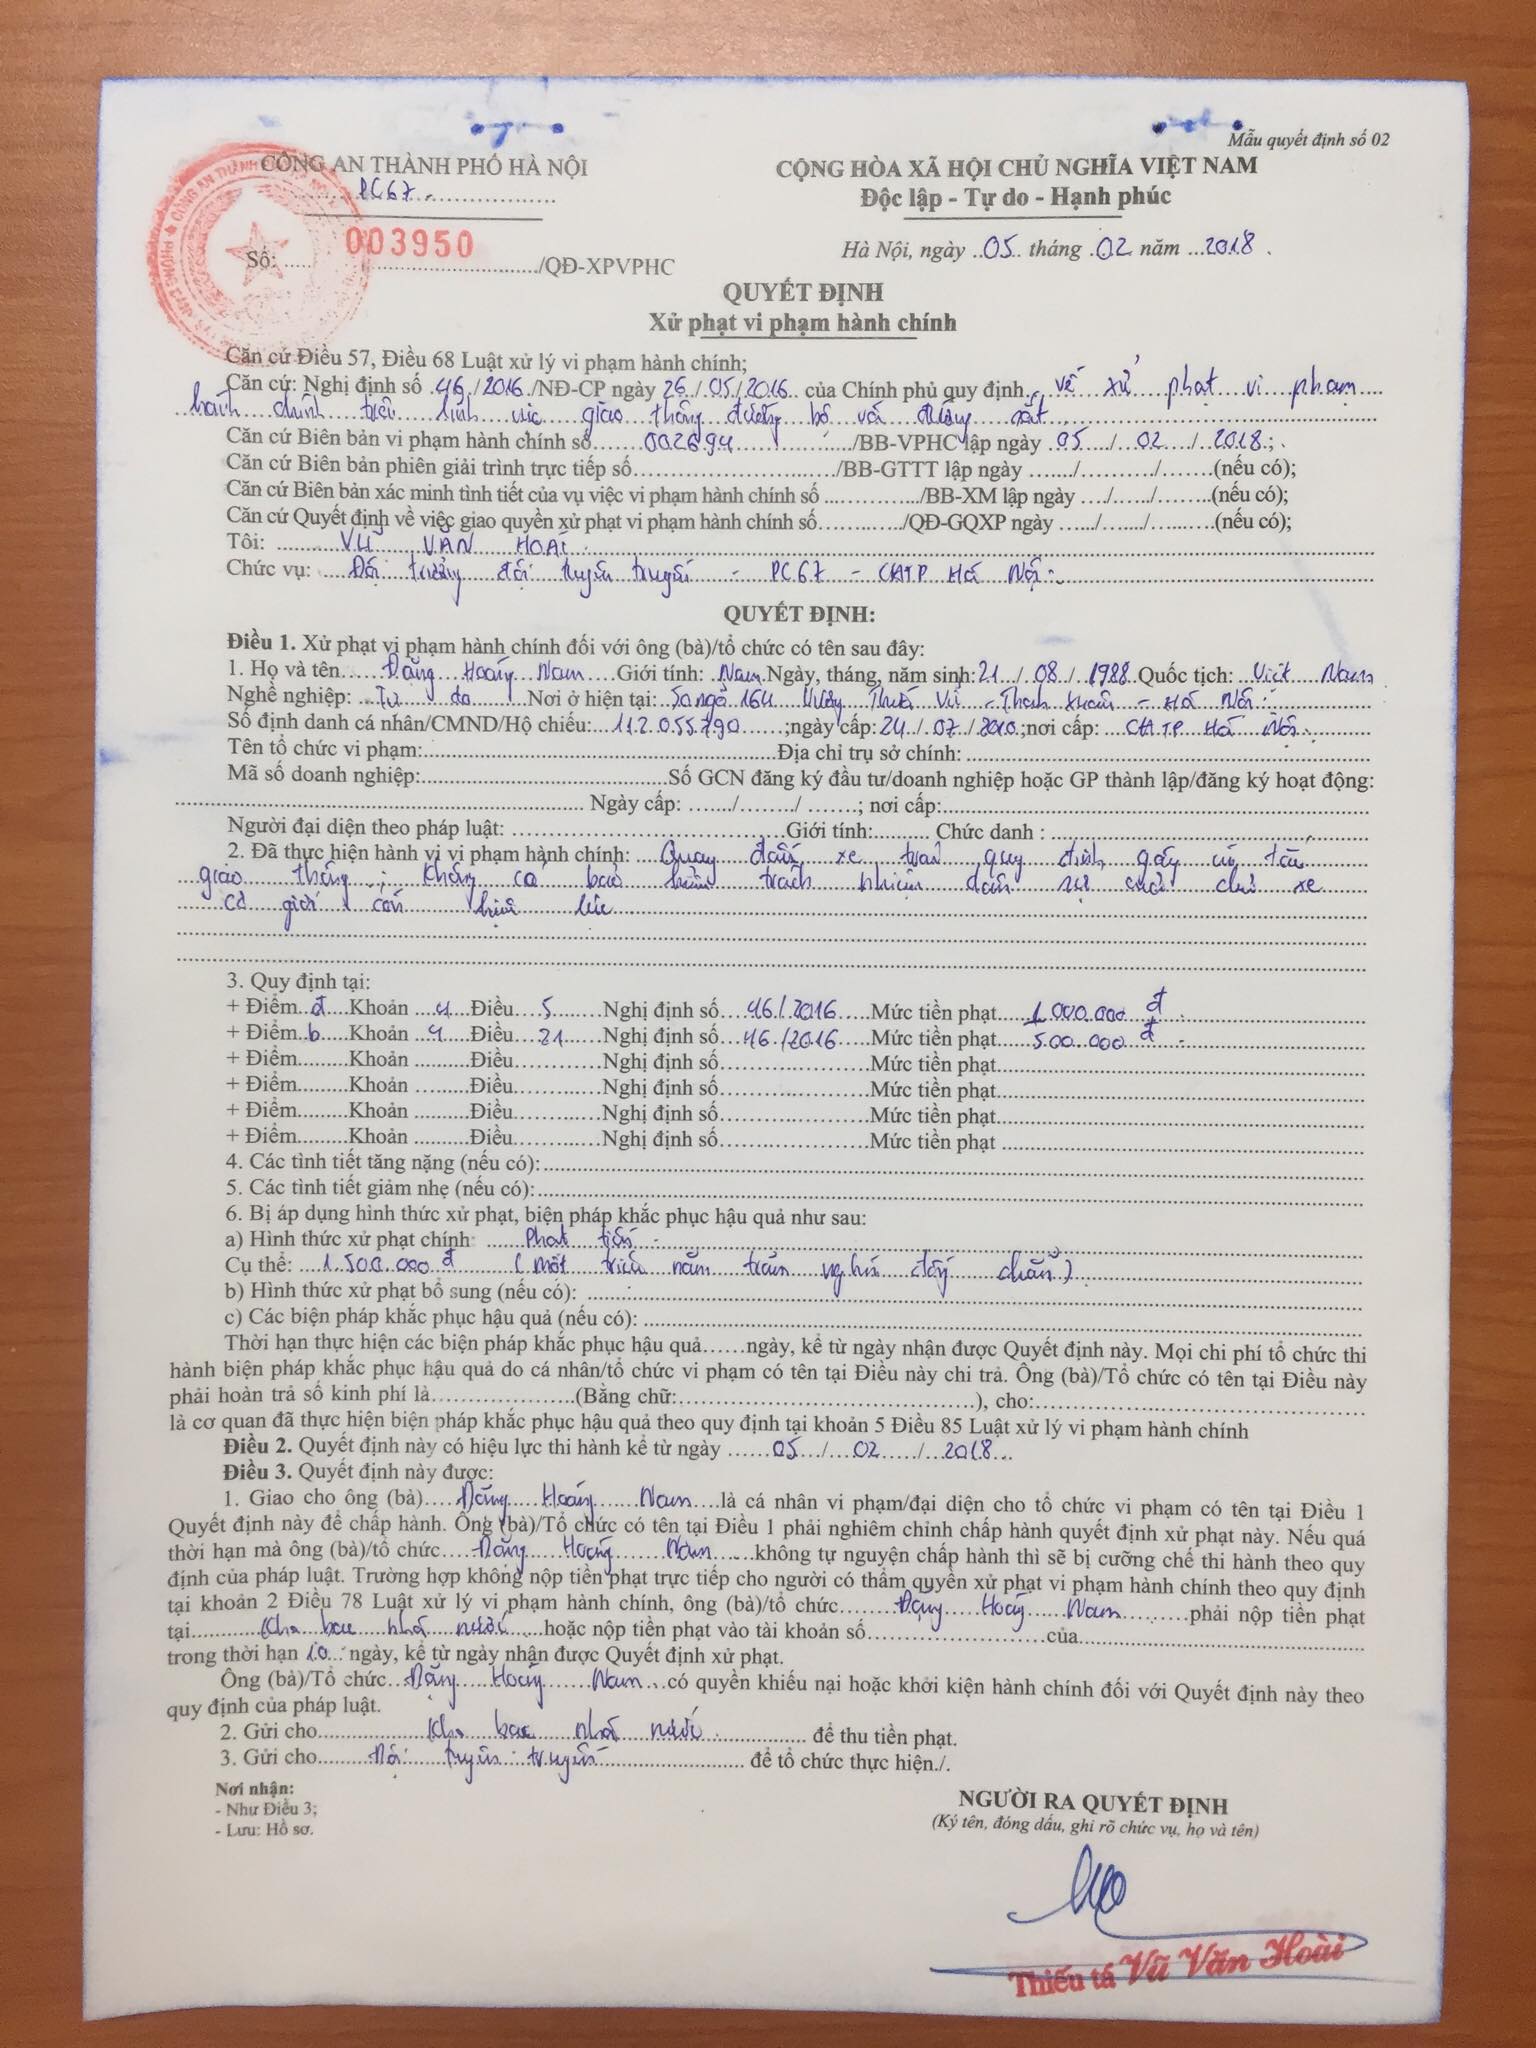 Mẫu quyết định số 02
CÔNG AN THÀNH PHỐ HÀ NỘI
PC67
CỘNG HÒA XÃ HỘI CHỦ NGHĨA VIỆT NAM
Độc lập - Tự do - Hạnh phúc
Số: 003950 /QĐ-XPVPHC
Hà Nội, ngày 05 tháng 02 năm 2018
QUYẾT ĐỊNH
Xử phạt vi phạm hành chính
Căn cứ Điều 57, Điều 68 Luật xử lý vi phạm hành chính;
Căn cứ: Nghị định số 46/2016/NĐ-CP ngày 26/05/2016 của Chính phủ quy định về xử phạt vi phạm
hành chính trên lĩnh vực giao thông đường bộ và đường sắt
Căn cứ Biên bản vi phạm hành chính số 002694 /BB-VPHC lập ngày 05/02/2018;
Căn cứ Biên bản phiên giải trình trực tiếp số............/BB-GTTT lập ngày ....../........../.......(nếu có);
Căn cứ Biên bản xác minh tình tiết của vụ việc vi phạm hành chính số ............/BB-XM lập ngày ..../....../........(nếu có);
Căn cứ Quyết định về việc giao quyền xử phạt vi phạm hành chính số............/QĐ-GQXP ngày ....../......./........(nếu có);
Tôi: VŨ VĂN HOÀI
Chức vụ: Đội trưởng đội tuyên truyền - PC67 - CATP Hà Nội
QUYẾT ĐỊNH:
Điều 1. Xử phạt vi phạm hành chính đối với ông (bà)/tổ chức có tên sau đây:
1. Họ và tên Đặng Hoàng Nam Giới tính: Nam Ngày, tháng, năm sinh: 21/08/1988 Quốc tịch: Việt Nam
Nghề nghiệp: Tự do Nơi ở hiện tại: ngõ 164 Vương Thừa Vũ - Thanh Xuân - Hà Nội
Số định danh cá nhân/CMND/Hộ chiếu: 112055790 ;ngày cấp: 24/07/2010;nơi cấp: CATP Hà Nội
Tên tổ chức vi phạm:..............Địa chỉ trụ sở chính:..............
Mã số doanh nghiệp:..............Số GCN đăng ký đầu tư/doanh nghiệp hoặc GP thành lập/đăng ký hoạt động:
.............. Ngày cấp: ......./......../ .......; nơi cấp:..............
Người đại diện theo pháp luật: ..............Giới tính:.......... Chức danh : ..............
2. Đã thực hiện hành vi vi phạm hành chính: Quay đầu xe trái quy định gây ùn tắc
giao thông; không có bảo hiểm trách nhiệm dân sự của chủ xe
cơ giới còn hiệu lực
3. Quy định tại:
+ Điểm đ Khoản 4 Điều 5 Nghị định số 46/2016 Mức tiền phạt 1.000.000 đ
+ Điểm b Khoản 4 Điều 21 Nghị định số 46/2016 Mức tiền phạt 500.000 đ
+ Điểm.........Khoản ..........Điều..........Nghị định số..............Mức tiền phạt..............
+ Điểm.........Khoản ..........Điều..........Nghị định số..............Mức tiền phạt..............
+ Điểm.........Khoản ..........Điều..........Nghị định số..............Mức tiền phạt..............
+ Điểm.........Khoản ..........Điều..........Nghị định số..............Mức tiền phạt ..............
4. Các tình tiết tăng nặng (nếu có):..............
5. Các tình tiết giảm nhẹ (nếu có):..............
6. Bị áp dụng hình thức xử phạt, biện pháp khắc phục hậu quả như sau:
a) Hình thức xử phạt chính Phạt tiền
Cụ thể: 1.500.000 đ (Một triệu năm trăm nghìn đồng chẵn)
b) Hình thức xử phạt bổ sung (nếu có): ..............
c) Các biện pháp khắc phục hậu quả (nếu có): ..............
Thời hạn thực hiện các biện pháp khắc phục hậu quả......ngày, kể từ ngày nhận được Quyết định này. Mọi chi phí tổ chức thi
hành biện pháp khắc phục hậu quả do cá nhân/tổ chức vi phạm có tên tại Điều này chi trả. Ông (bà)/Tổ chức có tên tại Điều này
phải hoàn trả số kinh phí là..............(Bằng chữ:..............), cho:..............
là cơ quan đã thực hiện biện pháp khắc phục hậu quả theo quy định tại khoản 5 Điều 85 Luật xử lý vi phạm hành chính
Điều 2. Quyết định này có hiệu lực thi hành kể từ ngày 05/02/2018
Điều 3. Quyết định này được:
1. Giao cho ông (bà) Đặng Hoàng Nam là cá nhân vi phạm/đại diện cho tổ chức vi phạm có tên tại Điều 1
Quyết định này để chấp hành. Ông (bà)/Tổ chức có tên tại Điều 1 phải nghiêm chỉnh chấp hành quyết định xử phạt này. Nếu quá
thời hạn mà ông (bà)/tổ chức Đặng Hoàng Nam không tự nguyện chấp hành thì sẽ bị cưỡng chế thi hành theo quy
định của pháp luật. Trường hợp không nộp tiền phạt trực tiếp cho người có thẩm quyền xử phạt vi phạm hành chính theo quy định
tại khoản 2 Điều 78 Luật xử lý vi phạm hành chính, ông (bà)/tổ chức Đặng Hoàng Nam phải nộp tiền phạt
tại Kho bạc nhà nước hoặc nộp tiền phạt vào tài khoản số..............của..............
trong thời hạn 10 ngày, kể từ ngày nhận được Quyết định xử phạt.
Ông (bà)/Tổ chức Đặng Hoàng Nam có quyền khiếu nại hoặc khởi kiện hành chính đối với Quyết định này theo
quy định của pháp luật.
2. Gửi cho Kho bạc nhà nước để thu tiền phạt.
3. Gửi cho Đội tuyên truyền để tổ chức thực hiện./.
Nơi nhận:
- Như Điều 3;
- Lưu: Hồ sơ.
NGƯỜI RA QUYẾT ĐỊNH
(Ký tên, đóng dấu, ghi rõ chức vụ, họ và tên)
Thiếu tá Vũ Văn Hoài